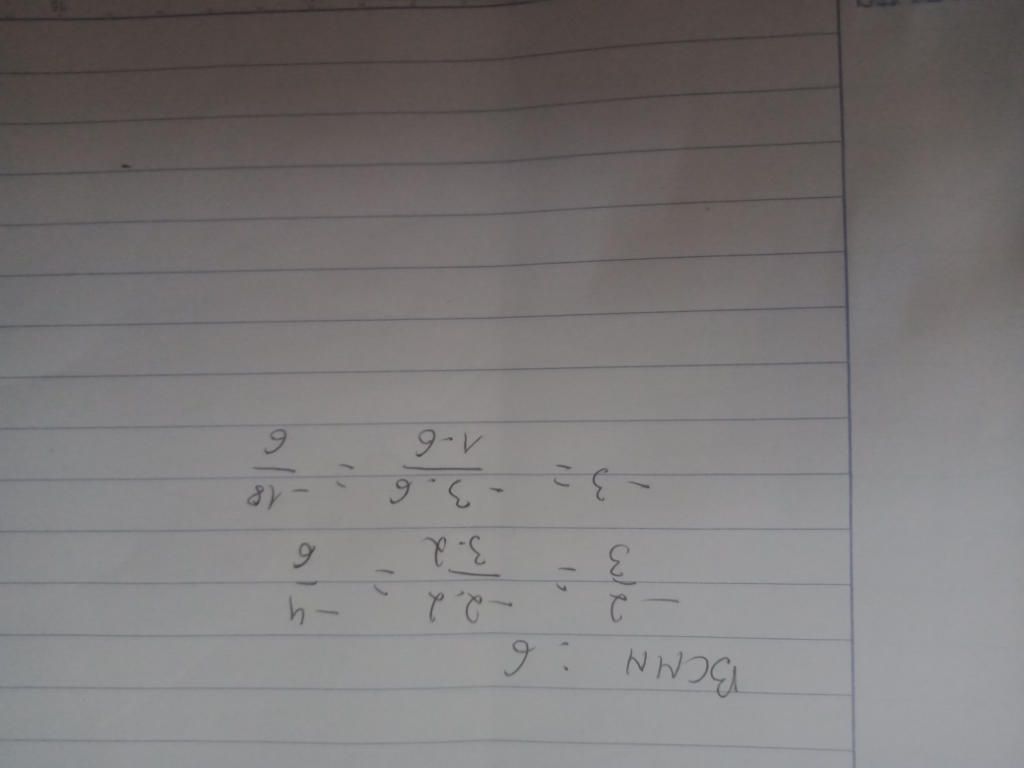 BCNN : 6
-2/3 = -2.2/3.2 = -4/6
-3 = -3.6/1.6 = -18/6